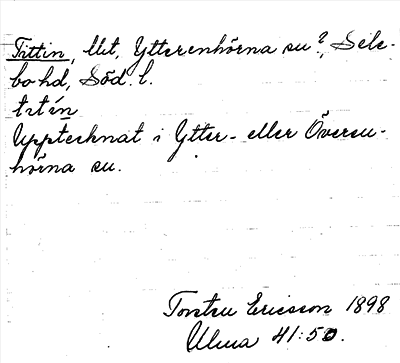 Tittin, Mt, Ytterenhörna sn?, Sele-
bo hd, Söd. l.
titín
Upptecknat i Ytter- eller Överen-
hörna sn.
Torsten Ericsson 1898
Ulma 41:50.